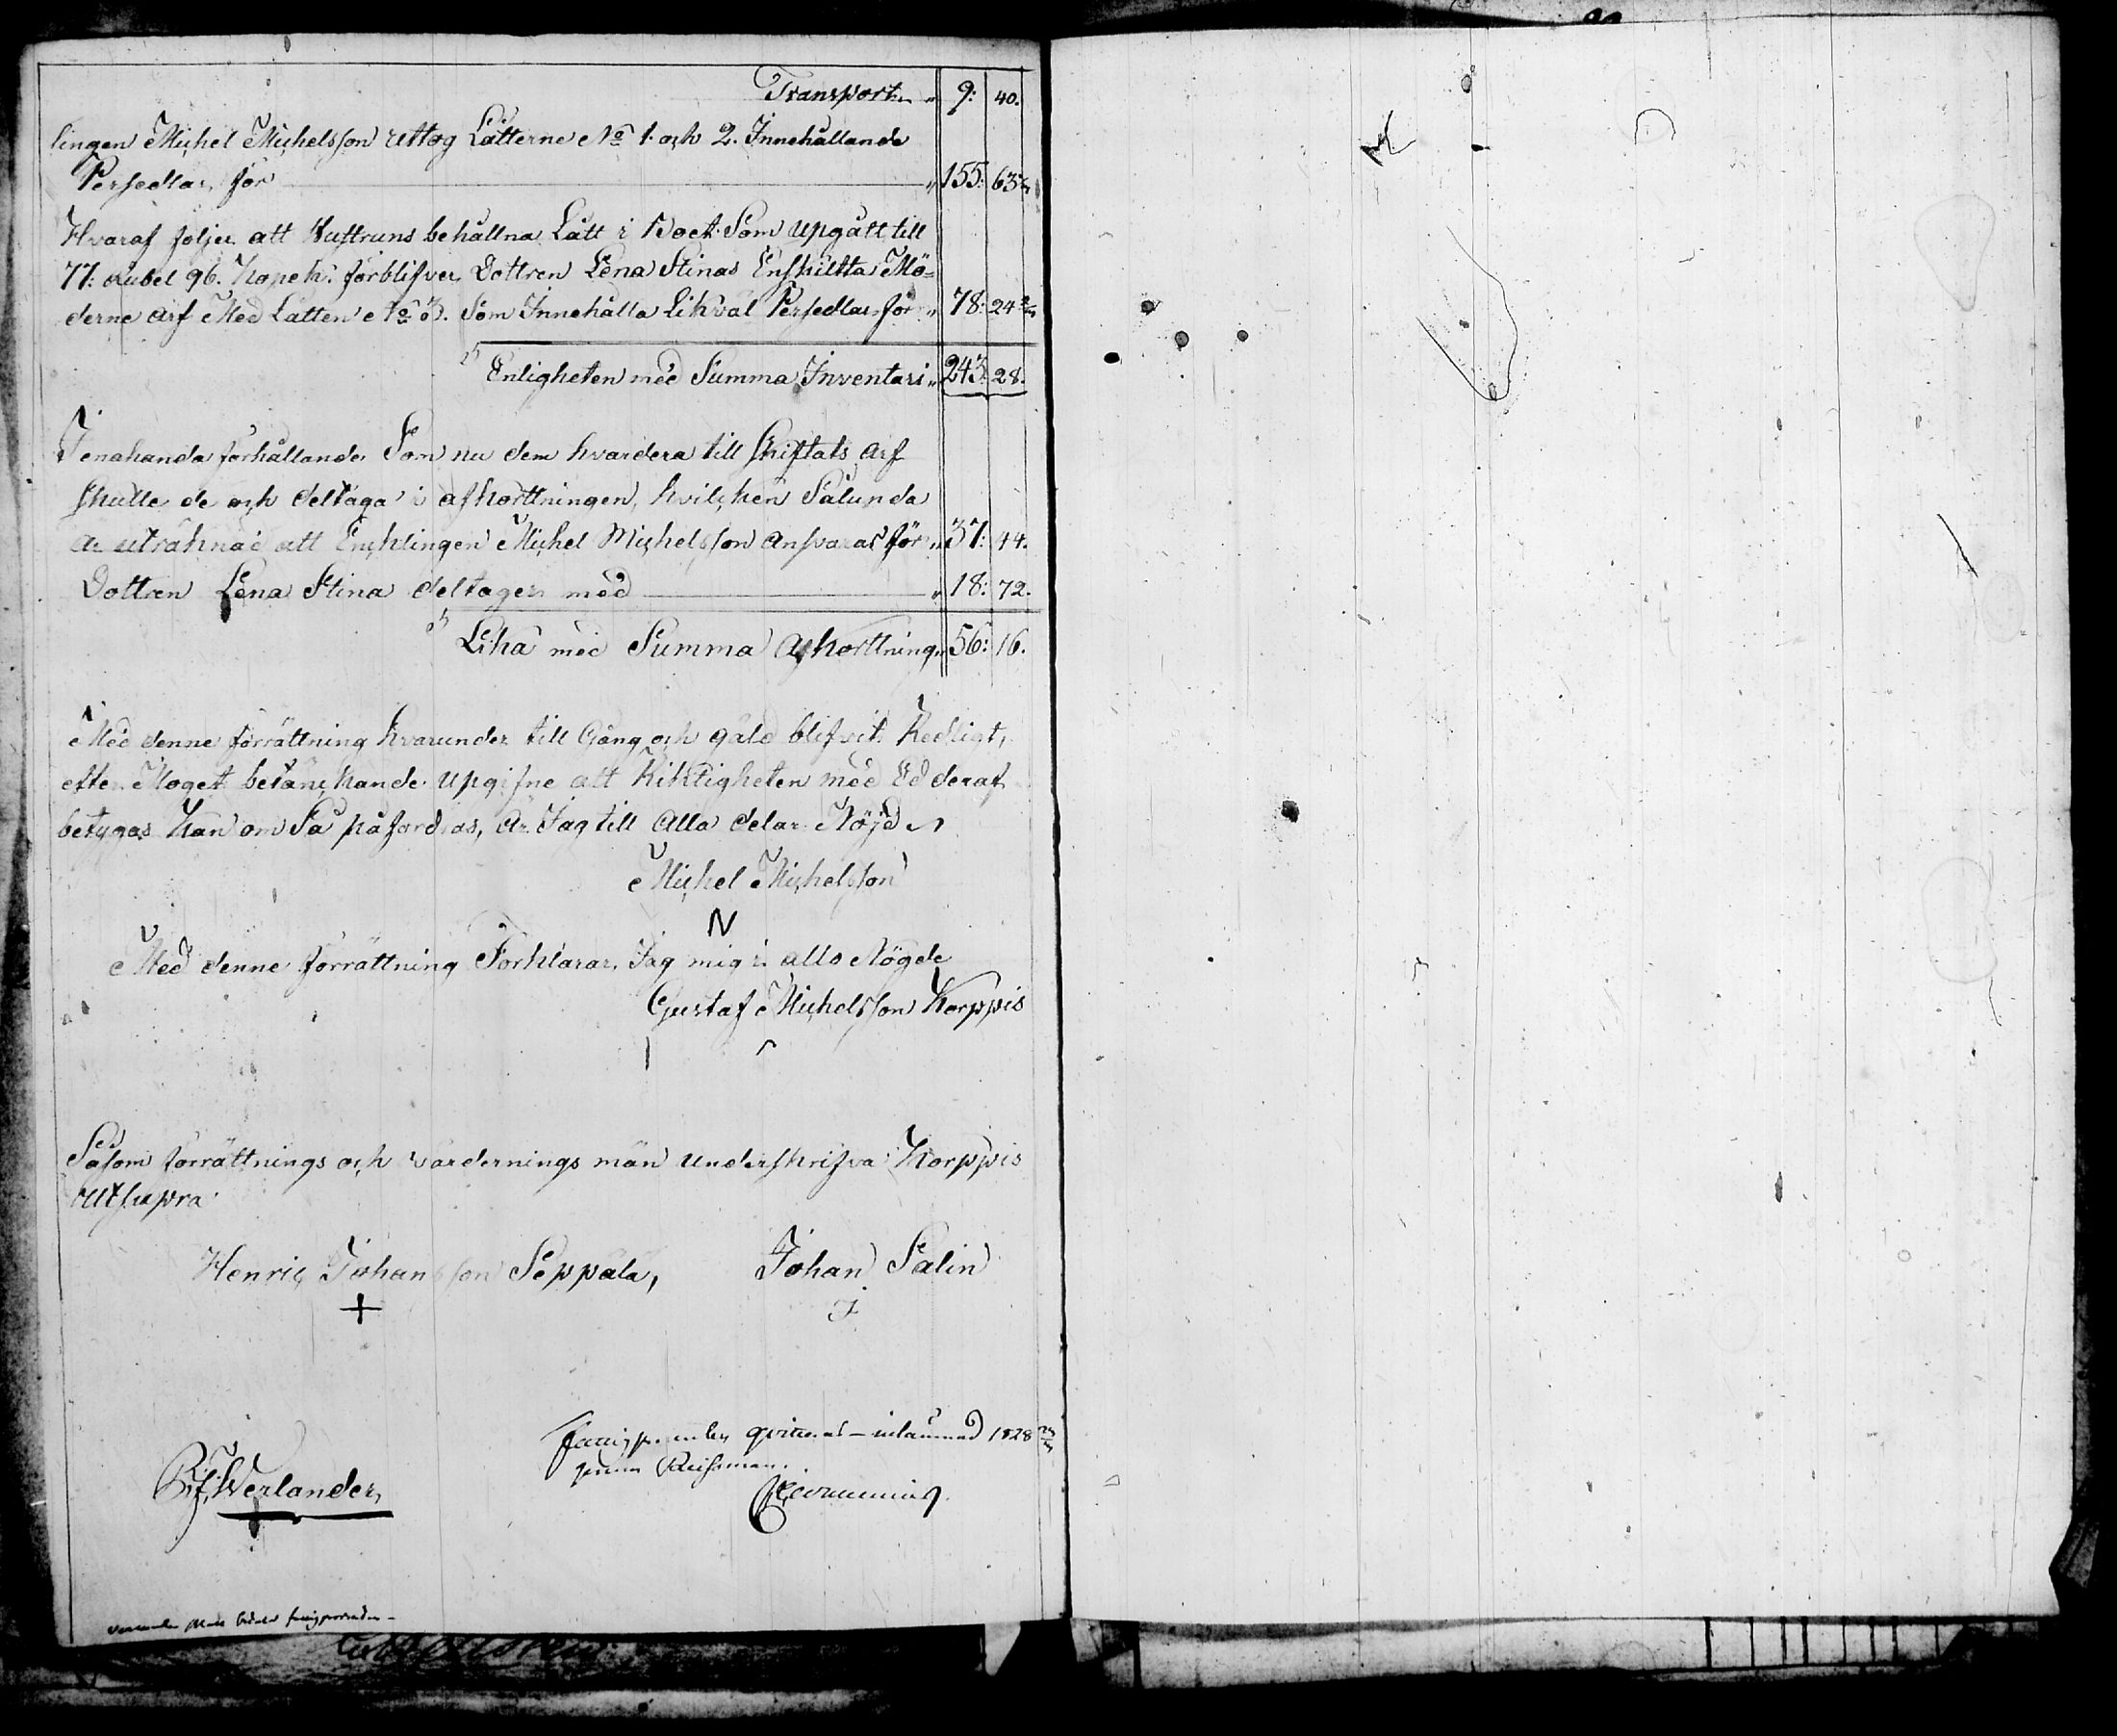 Transport " 9: 40.
lingen Michel Michelsson Uttog Låtterne No 1. och 2. Innehållande
Persedlar, för " 155: 63
Hvaraf följer att Hustruns behållna Lått i Boet Som Upgått till
77: Rubel 96. Kopek: förblifver Dottren Lena Stinas Enskiltta Mö=
derne Arf Med Låtten No 3. Som Innehålla Likväl Persedlar för " 78: 24
Enligheten med Summa Inventari " 243: 28.
I enahanda förhållande Som nu dem hvardera till skiftats Arf
skulle de och deltaga i afkorttningen, hvilcken Sålunda
är uträknad att Encklingen Michel Michelsson Ansvarar för " 37: 44.
Dottren Lena Stina deltager med " 18: 72.
Lika med Summa Afkorttning " 56: 16.
Med denne förrättning hvarunder till Gång och gäld blifvit Redligt,
efter Moget betänckande Upgifne att Riktigheten med Ed deraf
betygas Kan om Så påfordras, Är Jag till Alla delar Nöjd
Michel Michelsson
N
Med denne förrättning Förklarar Jag mig i allo Nögde
Gustaf Michelsson Korppis
Såsom förrättnings och värdernings män Underskrifva Korppis
Utsupra
Henric Johansson Seppälä, Johan Salin
+
1828
Werlander